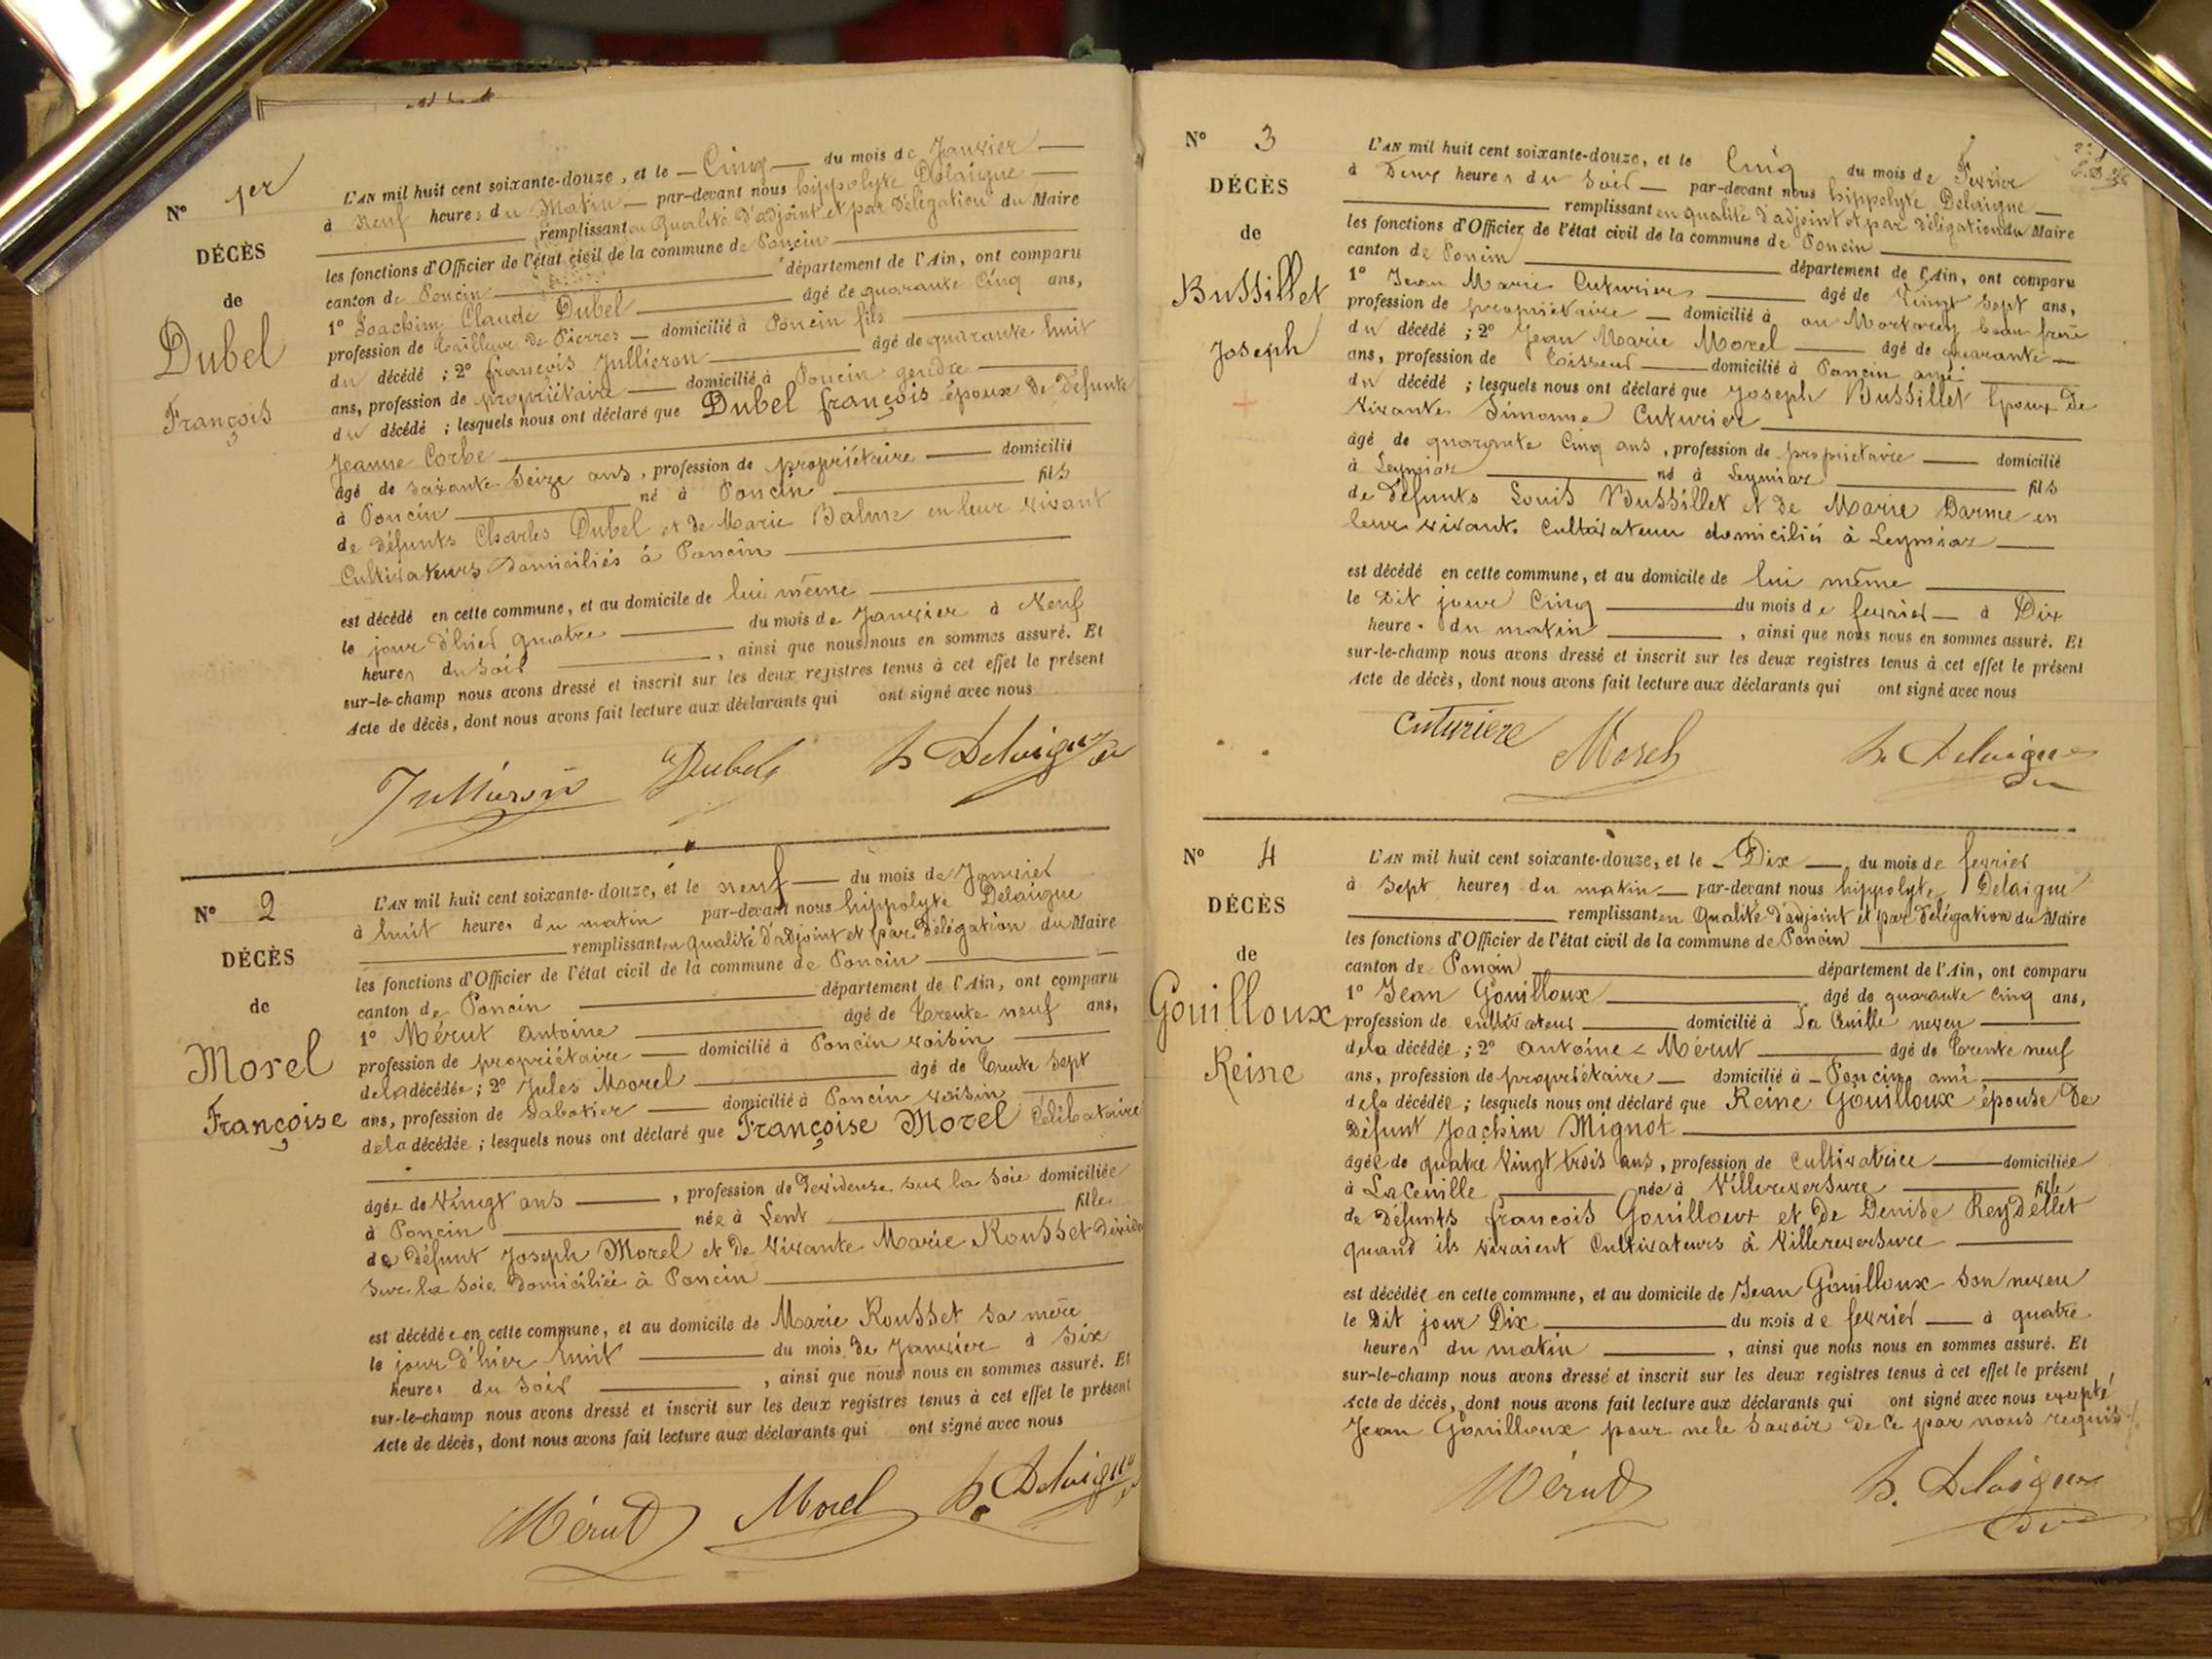 N° 1er
DÉCÈS
de
Dubel
François
L'AN mil huit cent soixante-douze, et le Cinq du mois de Janvier
à Neuf heures du Matin par-devant nous hippolyte Delaigue
remplissant en Qualité d'adjoint et par Délégation du Maire
les fonctions d'Officier de l'état civil de la commune de Poncin
canton de Poncin département de l'Ain, ont comparu
1° Joachim Claude Dubel âgé de quarante Cinq ans,
profession de tailleur de Pierres domicilié à Poncin fils
du décédé ; 2° françois Jullieron âgé de quarante huit
ans, profession de propriétaire domicilié à Poncin gendre
du décédé ; lesquels nous ont déclaré que Dubel françois époux de Defunte
Jeanne Corbe
âgé de soixante Seize ans, profession de propriétaire domicilié
à Poncin né à Poncin fils
de défunts Charles Dubel et de Marie Balme en leur vivant
Cultivateurs Domiciliés à Poncin
est décédé en cette commune, et au domicile de lui même
le jour d'hier quatre du mois de Janvier à Neuf
heures du Soir , ainsi que nous nous en sommes assuré. Et
sur-le-champ nous avons dressé et inscrit sur les deux registres tenus à cet effet le présent
Acte de décès, dont nous avons fait lecture aux déclarants qui ont signé avec nous
Dubel h Delaigue
N° 2
DÉCÈS
de
Morel
Françoise
L'AN mil huit cent soixante-douze, et le neuf du mois de Janvier
à huit heures du matin par-devant nous hippolyte Delaigue
remplissant en qualité d'adjoint et par Délégation du Maire
les fonctions d'Officier de l'état civil de la commune de Poncin
canton de Poncin département de l'Ain, ont comparu
1° Mérut antoine âgé de trente neuf ans,
profession de propriétaire domicilié à Poncin voisin
de la décédée ; 2° Jules Morel âgé de trente sept
ans, profession de Sabotier domicilié à Poncin voisin
de la décédée ; lesquels nous ont déclaré que Françoise Morel Célibataire
âgée de Vingt ans , profession de Devideuse sur la Soie domiciliée
à Poncin née à Lent fille
de Défunt Joseph Morel et de Vivante Marie Rousset
sur la Soie Domiciliée à Poncin
est décédée en cette commune, et au domicile de Marie Rousset sa mère
le jour d'hier huit du mois de Janvier à Six
heures du Soir , ainsi que nous nous en sommes assuré. Et
sur-le-champ nous avons dressé et inscrit sur les deux registres tenus à cet effet le présent
Acte de décès, dont nous avons fait lecture aux déclarants qui ont signé avec nous
Mérut Morel h. Delaigue
N° 3
DÉCÈS
de
Bussillet
Joseph
L'AN mil huit cent soixante-douze, et le Cinq du mois de Fevrier
à Deux heures du Soir par-devant nous hippolyte Delaigue
remplissant en qualité d'adjoint et par Délégation du Maire
les fonctions d'Officier de l'état civil de la commune de Poncin
canton de Poncin département de l'Ain, ont comparu
1° Jean Marie Cuturier âgé de Vingt Sept ans,
profession de propriétaire domicilié à au beau frere
du décédé ; 2° Jean Marie Morel âgé de quarante
ans, profession de domicilié à Poncin ami
du décédé ; lesquels nous ont déclaré que Joseph Bussillet Epoux De
Vivante Simonne Cuturier
âgé de quarante Cinq ans, profession de propriétaire domicilié
à Leymiaz né à Leymiaz fils
de Défunts Louis Bussillet et de Marie Darme en
leur vivant Cultivateur domiciliés à Leymiaz
est décédé en cette commune, et au domicile de lui même
le Dit jour Cinq du mois de fevrier à Dix
heures du matin , ainsi que nous nous en sommes assuré. Et
sur-le-champ nous avons dressé et inscrit sur les deux registres tenus à cet effet le présent
Acte de décès, dont nous avons fait lecture aux déclarants qui ont signé avec nous
Cuturier Morel h. Delaigue
N° 4
DÉCÈS
de
Gouilloux
Reine
L'AN mil huit cent soixante-douze, et le Dix du mois de fevrier
à Sept heures du matin par-devant nous hippolyte Delaigue
remplissant en Qualité d'adjoint et par Délégation du Maire
les fonctions d'Officier de l'état civil de la commune de Poncin
canton de Poncin département de l'Ain, ont comparu
1° Jean Gouilloux âgé de quarante cinq ans,
profession de cultivateur domicilié à La Cueille neveu
de la décédée ; 2° antoine Mérut âgé de trente neuf
ans, profession de propriétaire domicilié à Poncin ami
de la décédée ; lesquels nous ont déclaré que Reine Gouilloux épouse De
Défunt Joachim Mignot
âgée de quatre Vingt trois ans, profession de Cultivatrice domiciliée
à La Cueille née à Villereversure fille
de Défunts francois Gouilloux et de Denise Reydellet
quand ils vivaient Cultivateurs à Villereversure
est décédée en cette commune, et au domicile de Jean Gouilloux son neveu
le Dit jour Dix du mois de fevrier à quatre
heures du matin , ainsi que nous nous en sommes assuré. Et
sur-le-champ nous avons dressé et inscrit sur les deux registres tenus à cet effet le présent
Acte de décès, dont nous avons fait lecture aux déclarants qui ont signé avec nous excepté
Jean Gouilloux pour ne le Savoir de Ce par nous requis
Mérut h. Delaigue